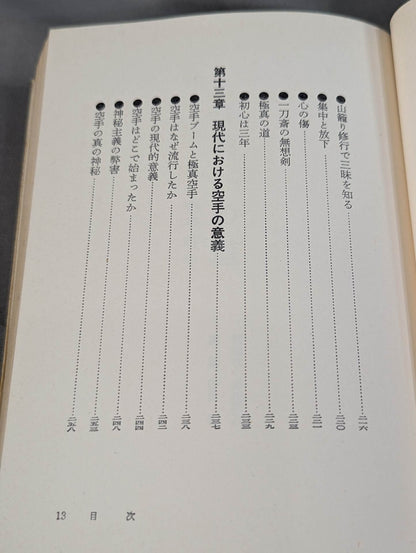 ●山籠り修行で三昧を知る……二一六
●集中と放下……二二〇
●心の傷……二二一
●一刀斎の無想剣……二二三
●極真の道……二二九
●初心は三年……二三三
第十三章 現代における空手の意義……二三七
●空手ブームと極真空手……二三八
●空手はなぜ流行したか……二四二
●空手の現代的意義……二四四
●空手はどこで始まったか……二四八
●神秘主義の弊害……二五三
●空手の真の神秘……二五八
13 目 次